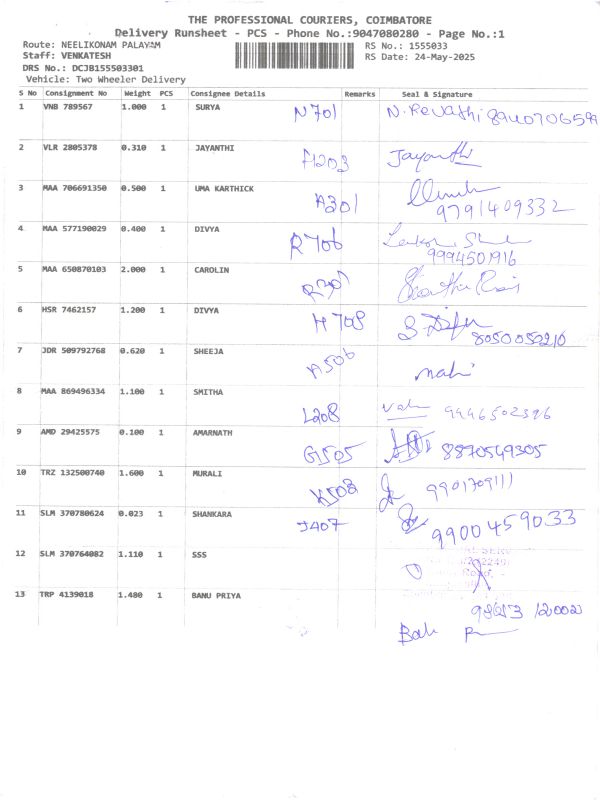 THE PROFESSIONAL COURIERS, COIMBATORE
Delivery Runsheet - PCS - Phone No.:9047080280 - Page No.:1
Route: NEELIKONAM PALAYAM RS No.: 1555033
Staff: VENKATESH RS Date: 24-May-2025
DRS No.: DCJB155503301
Vehicle: Two Wheeler Delivery
S No Consignment No Weight PCS Consignee Details Remarks Seal & Signature
1 VNB 789567 1.000 1 SURYA N701 N. Revathi 8940706599
2 VLR 2805378 0.310 1 JAYANTHI A1203 Jayanthi
3 MAA 706691350 0.500 1 UMA KARTHICK A301
9791409332
4 MAA 577190029 0.400 1 DIVYA R706
9994501916
5 MAA 650870103 2.000 1 CAROLIN
6 HSR 7462157 1.200 1 DIVYA H708
8050052210
7 JDR 509792768 0.620 1 SHEEJA A506
8 MAA 869496334 1.100 1 SMITHA L208 9946502396
9 AMD 29425575 0.100 1 AMARNATH G1505 8870549305
10 TRZ 132500740 1.600 1 MURALI K508 9901709111
11 SLM 370780624 0.023 1 SHANKARA J407 9900459033
12 SLM 370764082 1.110 1 SSS
13 TRP 4139018 1.480 1 BANU PRIYA